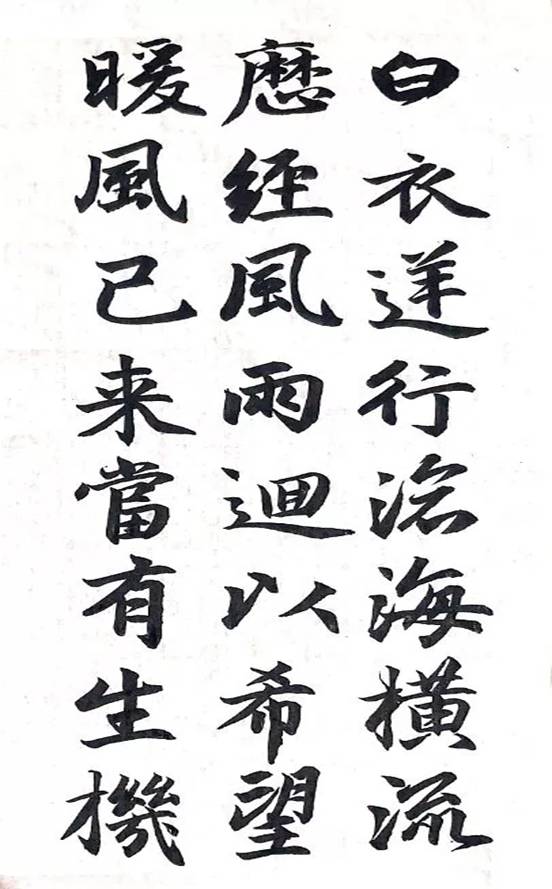 白衣逆行滄海橫流
歷經風雨迴以希望
暖風已来當有生機